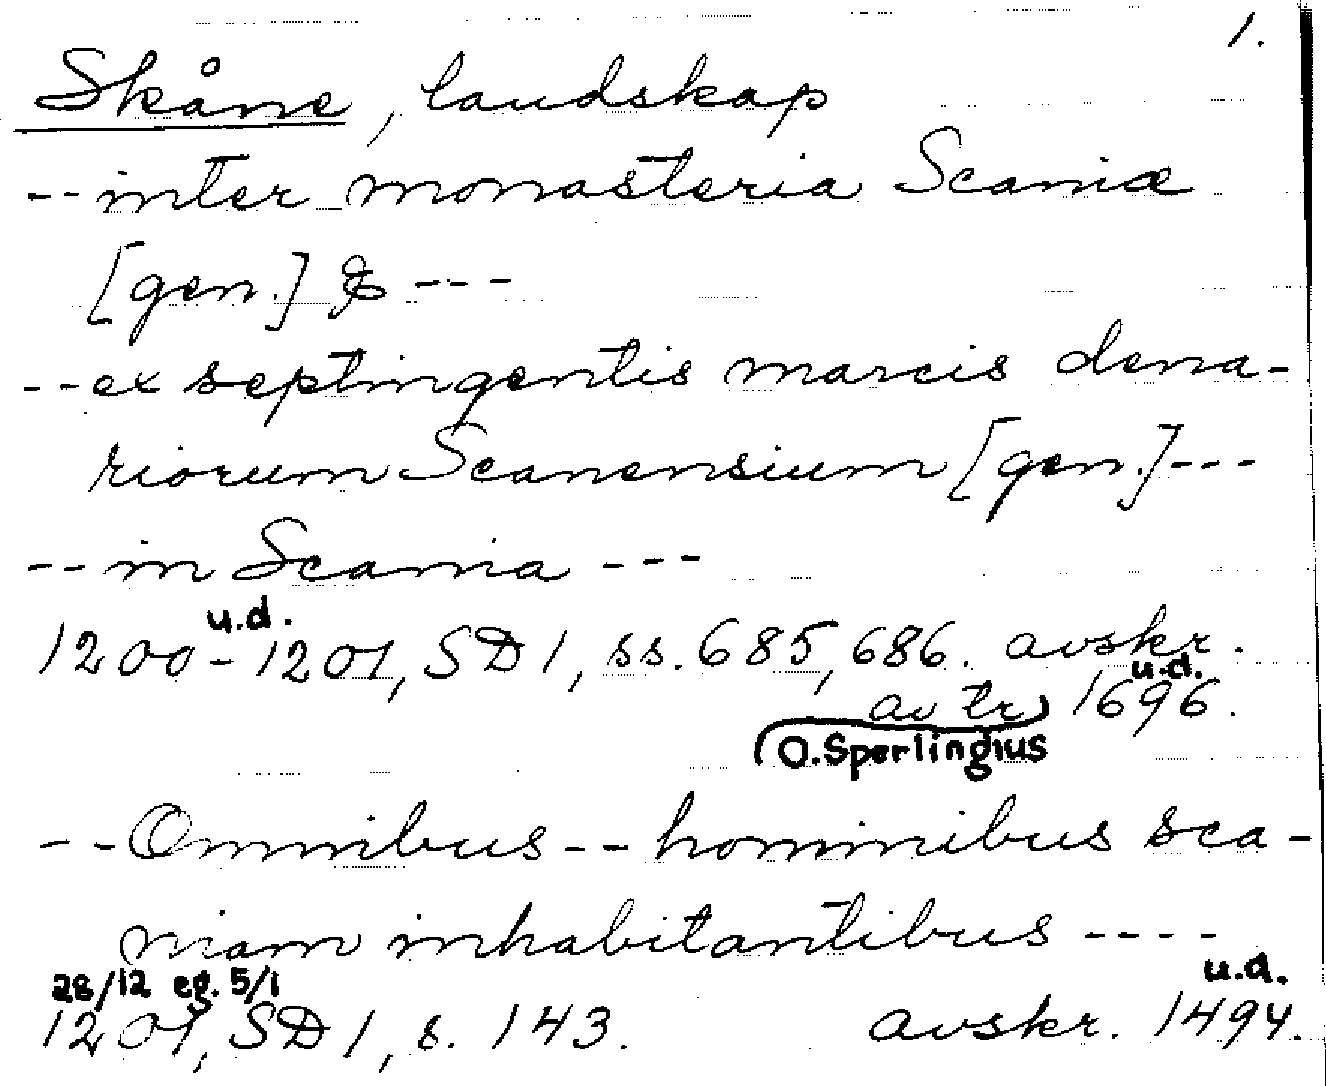 1.
Skåne, landskap
-- inter monasteria Scaniæ
[gen.] & ---
-- ex septingentis marcis dena-
riorum Scanensium [gen.] ---
-- in Scania ---
u.d.
1200-1201, SD 1, ss. 685, 686. avskr.
u.d.
av tr 1696.
O. Sperlingius
-- Omnibus -- hominibus sca-
niam inhabitantibus ----
28/12 eg. 5/1 u.d.
1201, SD 1, s. 143. avskr. 1494.